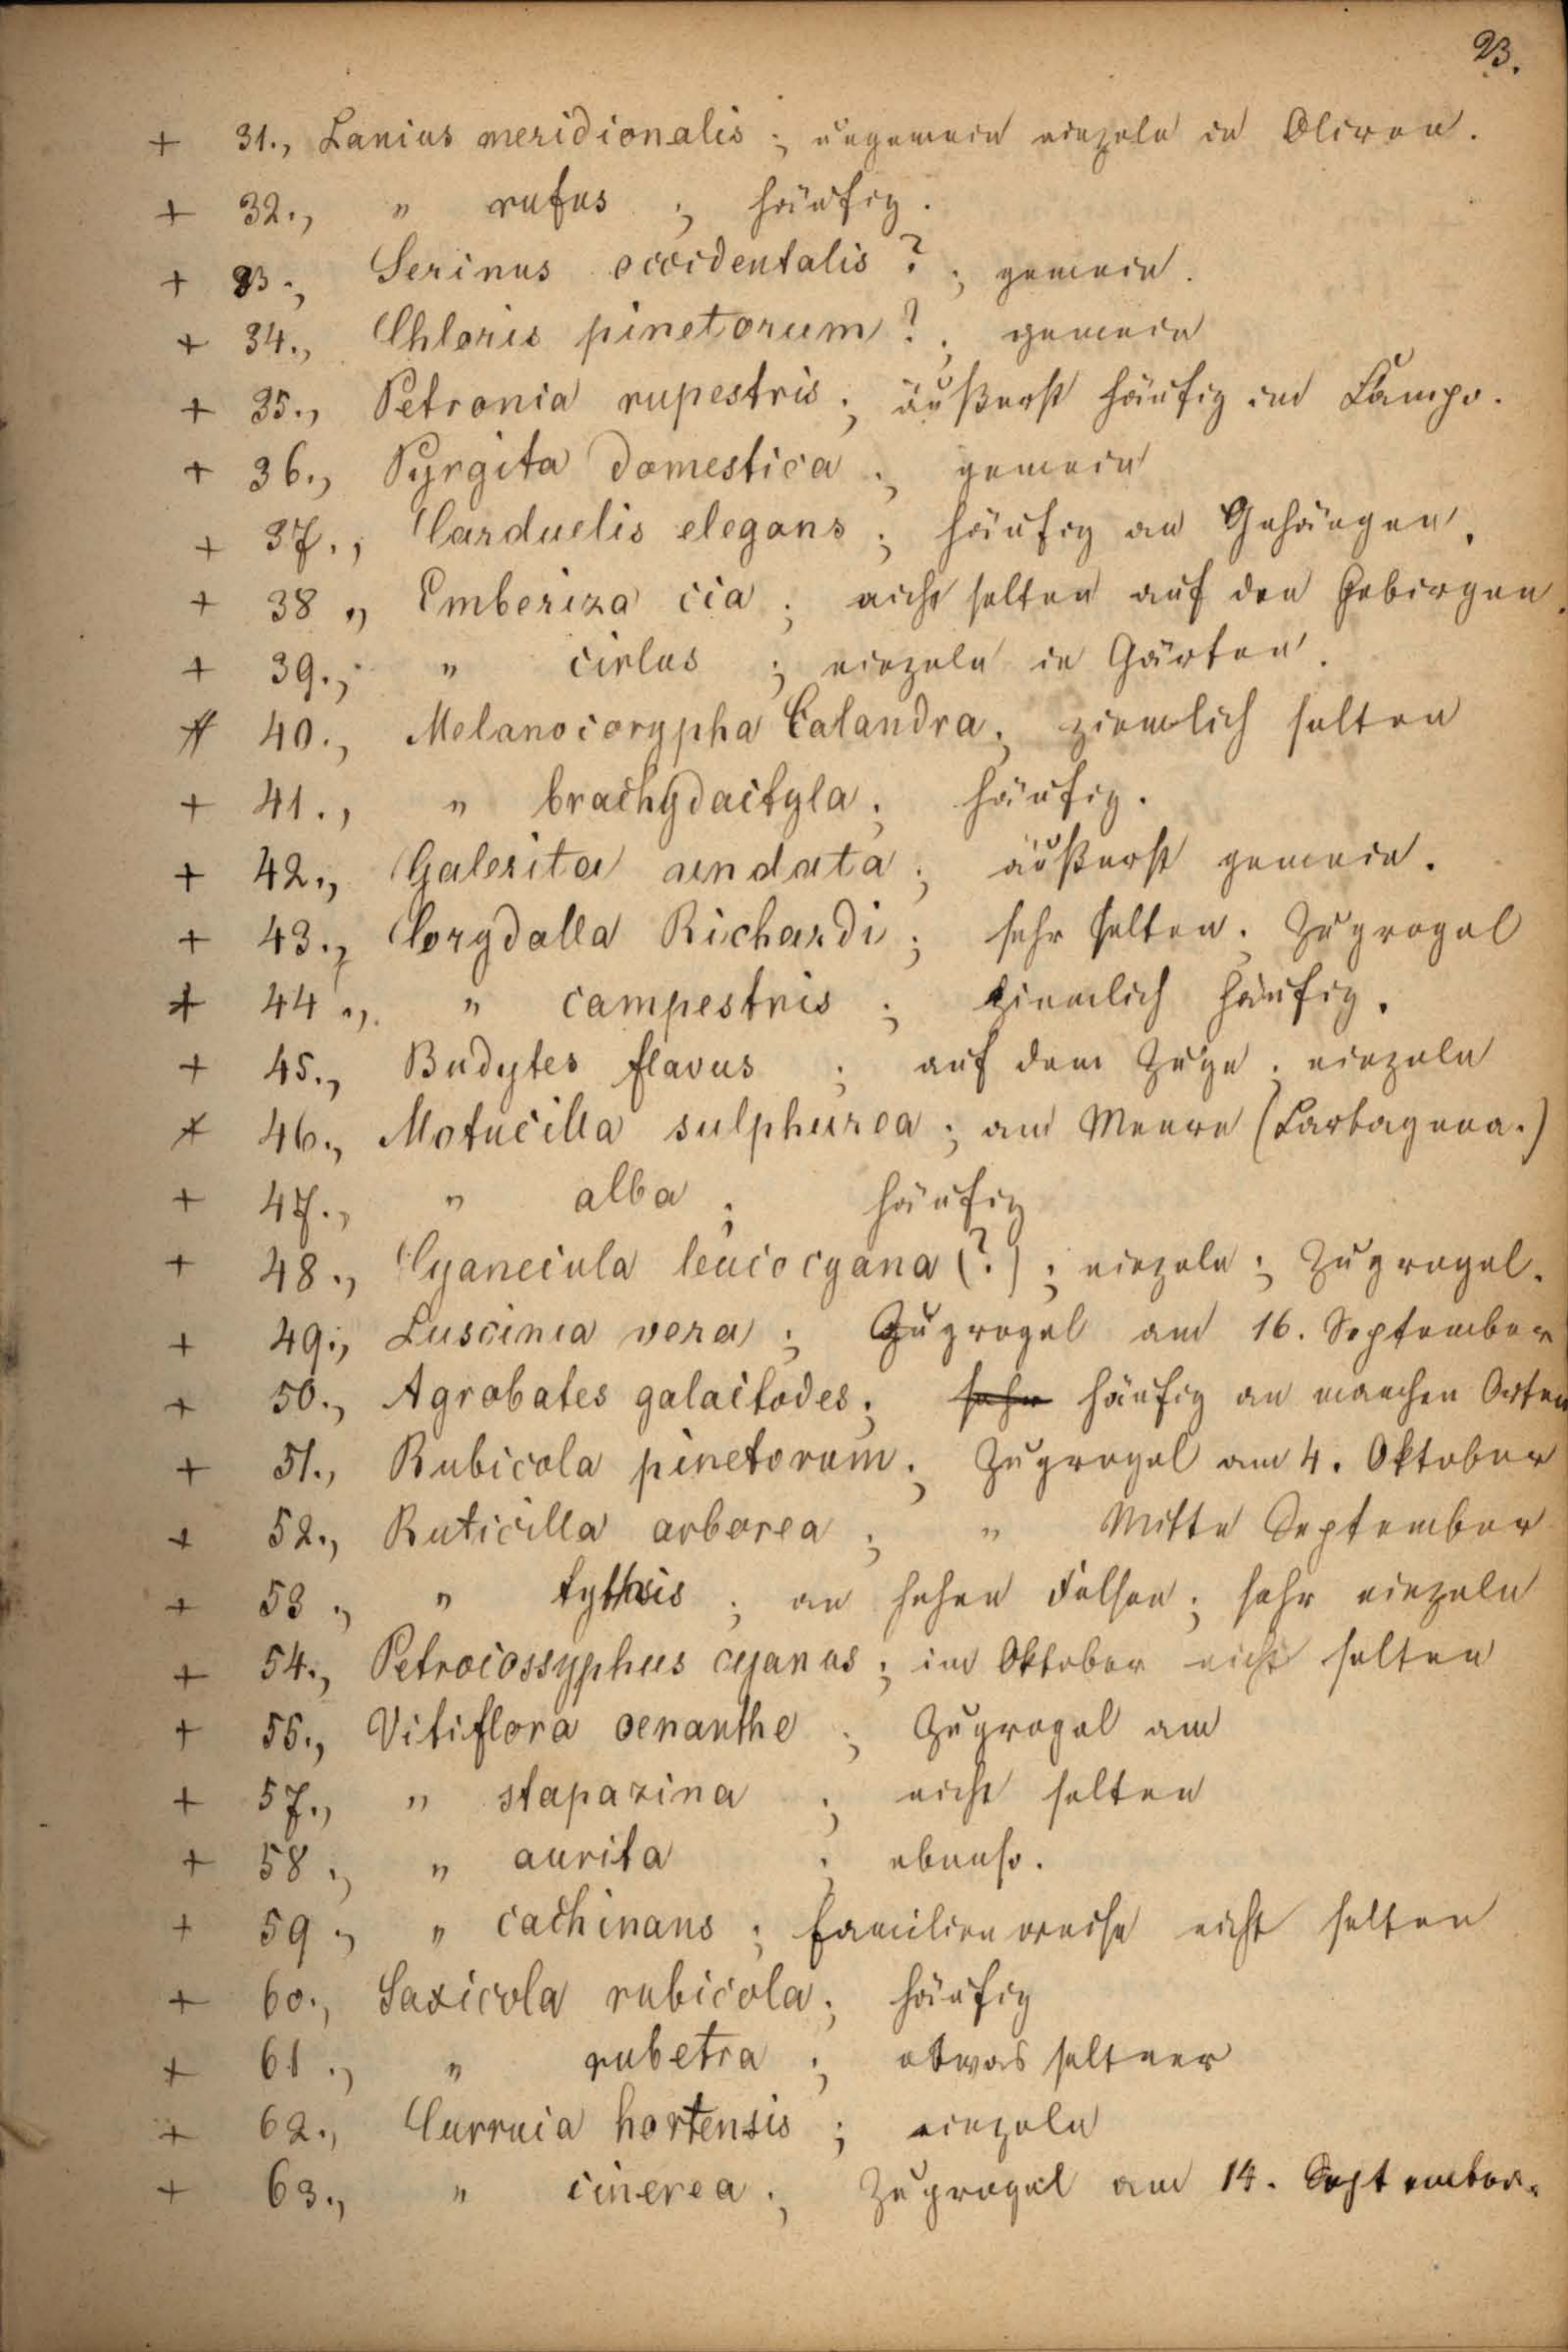 23.
+ 31., Lanius meridionalis ; ungemein einzeln in Oliven.
+ 32., " rufus ; häufig.
+ 33., Serinus occidentalis? ; gemein.
+ 34., Chloris pinetorum? ; gemein
+ 35., Petronia rupestris ; äußerst häufig im Campo.
+ 36., Pyrgita domestica ; gemein
+ 37., Carduelis elegans ; häufig an Gehängen.
+ 38., Emberiza cia ; nicht selten auf den Gebirgen.
+ 39., " cirlus ; einzeln in Gärten.
+ 40., Melanocorypha Calandra ; ziemlich selten
+ 41., " brachydactyla ; häufig.
+ 42., Galerita undata ; äußerst gemein.
+ 43., Corydalla Richardi ; sehr selten. Zugvogel
+ 44., " campestris ; ziemlich häufig.
+ 45., Budytes flavus ; auf dem Zuge ; einzeln
+ 46., Motacilla sulphurea ; am Meere (Cartagena.)
+ 47., " alba ; häufig
+ 48., Cyanecula leucocyana (?) ; einzeln ; Zugvogel.
+ 49., Luscinia vera ; Zugvogel am 16. September
+ 50., Agrobates galactodes ; sehr häufig an manchen Orten
+ 51., Rubicola pinetorum ; Zugvogel am 4. Oktober
+ 52., Ruticilla arborea ; " Mitte September
+ 53., " tythis ; an hohen Felsen ; sehr einzeln
+ 54., Petrocossyphus cyanus ; im Oktober nicht selten
+ 55., Vitiflora oenanthe ; Zugvogel am
+ 57., " stapazina ; nicht selten
+ 58., " aurita ; ebenso.
+ 59., " cachinans ; familienweise nicht selten
+ 60., Saxicola rubicola ; häufig
+ 61., " rubetra ; etwas seltner
+ 62., Curruca hortensis ; einzeln
+ 63., " cinerea ; Zugvogel am 14. September.